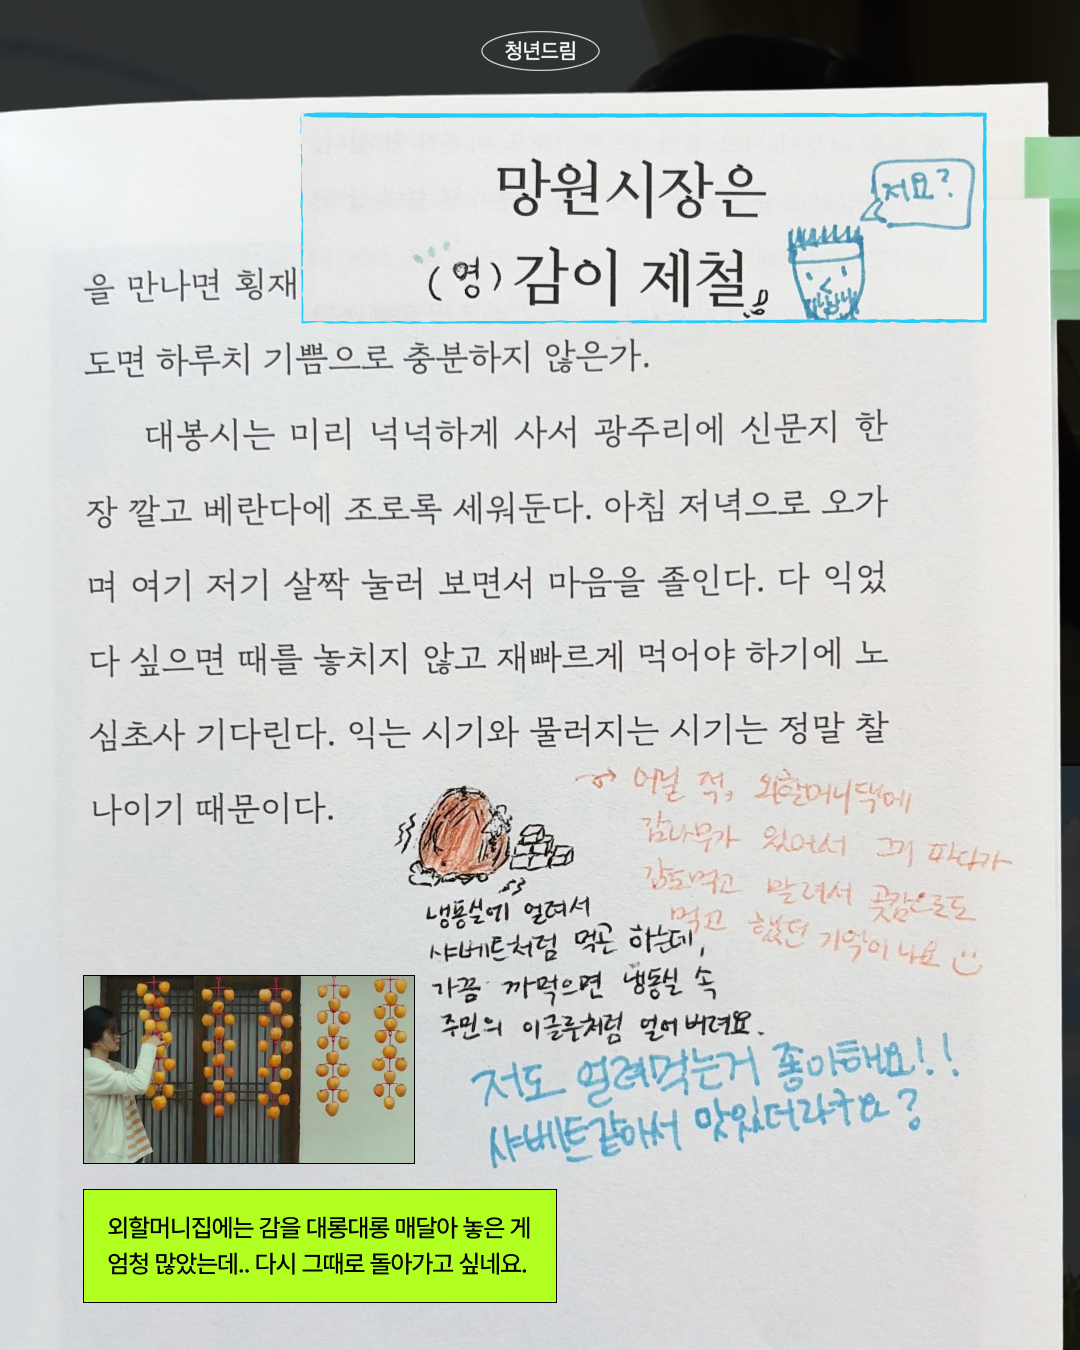 청년드림
망원시장은
저요?
(영) 감이 제철
을 만나면 횡재
도면 하루치 기쁨으로 충분하지 않은가.
대봉시는 미리 넉넉하게 사서 광주리에 신문지 한
장 깔고 베란다에 조로록 세워둔다. 아침 저녁으로 오가
며 여기 저기 살짝 눌러 보면서 마음을 졸인다. 다 익었
다 싶으면 때를 놓치지 않고 재빠르게 먹어야 하기에 노
심초사 기다린다. 익는 시기와 물러지는 시기는 정말 찰
나이기 때문이다.
어릴 적, 외할머니댁에
감나무가 있어서 그거 따다가
감도먹고 말려서 곶감으로도
먹고 했던 기억이 나요
냉동실에 얼려서
샤베트처럼 먹곤 하는데,
가끔 까먹으면 냉동실 속
주민의 이글루처럼 얼어버려요.
저도 얼려먹는거 좋아해요!!
샤베트같아서 맛있더라구요?
외할머니집에는 감을 대롱대롱 매달아 놓은 게
엄청 많았는데.. 다시 그때로 돌아가고 싶네요.